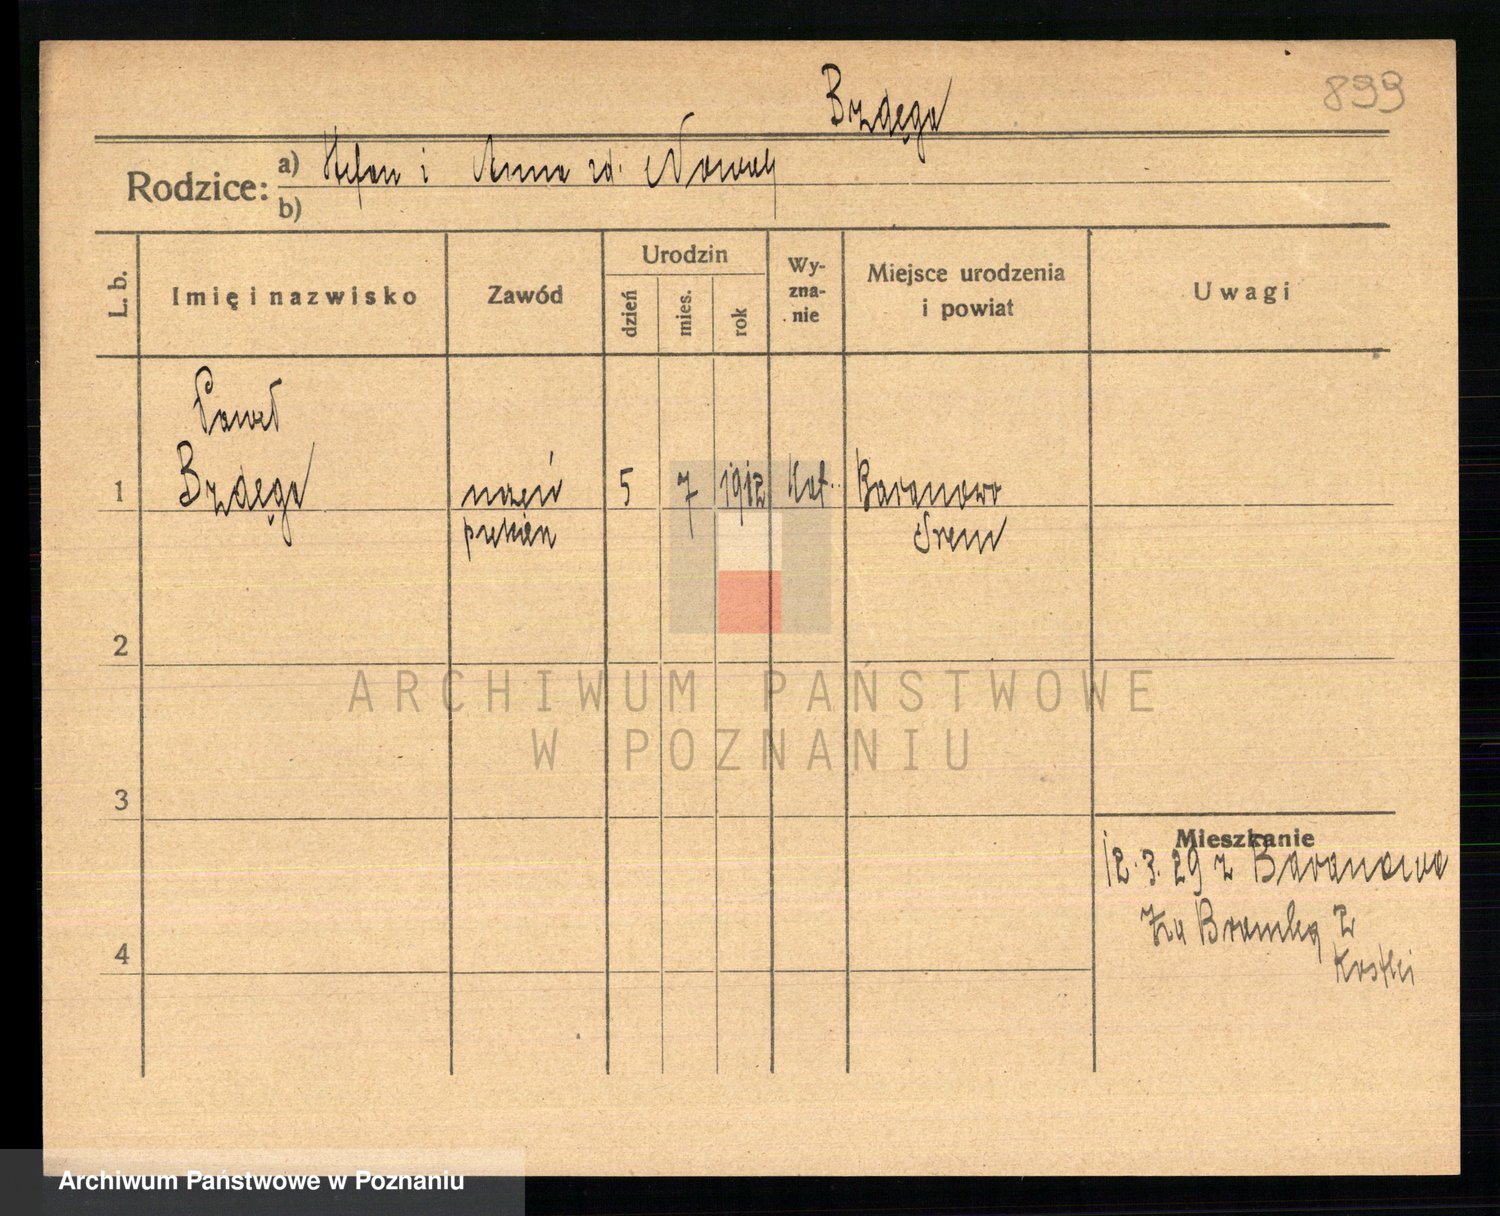 899
Brdęga
Rodzice: a) Stefan i Anna rd. Nowak
b)
L. b.
Imię i nazwisko
Zawód
Urodzin
dzień
mies.
rok
Wy-
zna-
nie
Miejsce urodzenia
i powiat
Uwagi
Paweł
1 Brzdęga 5 7 1912 kat. Baranowo
Śrem
2
3
4
Mieszkanie
12.3.29 z Baranowa
Za Bramką 2
ARCHIWUM PAŃSTWOWE
W POZNANIU
Archiwum Państwowe w Poznaniu